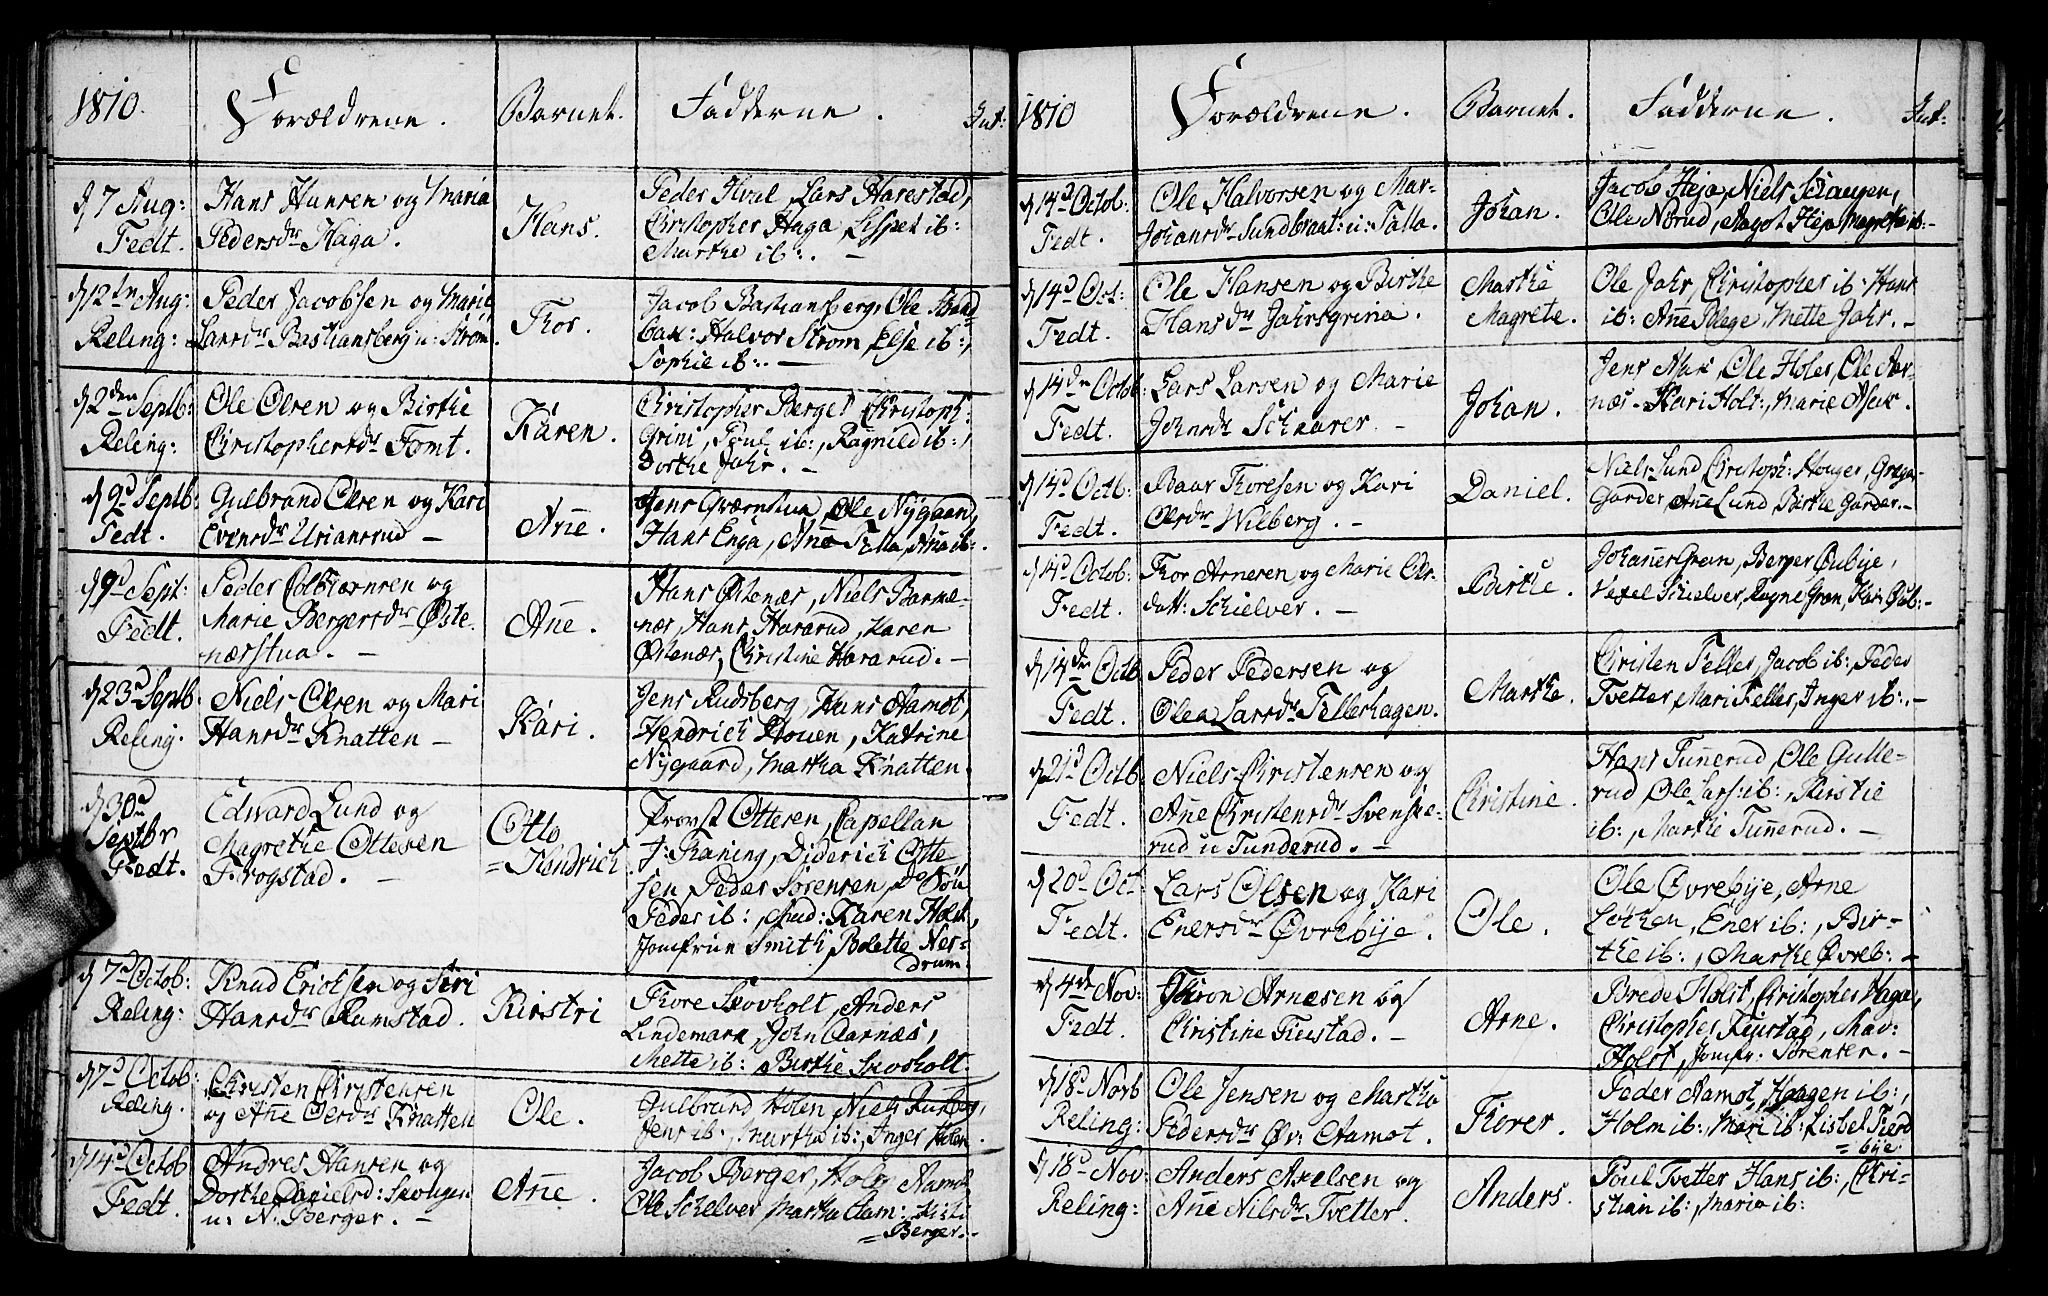 1810.
Forældrene.
Barnet.
Fadderne.
Int:
d 7 Aug:
Fedt.
Hans Hansen og Maria
Pedersdr Haga.
Hans.
Peder Hval, Lars Harestad,
Christopher Haga, Lispet ib:
Marthe ib:. –
d 12te Aug:
Reling:
Peder Jacobsen og Marie
Larsdr Bastiansberg u: Strøm.
Thor.
Jacob Bastiansberg, Ole
Halvor Strøm, Else ib:,
Sophie ib:. –
d 2den Septb:
Reling:
Ole Olsen og Birthe
Christophersdr Tomt.
Karen.
Christopher Berger, Christoph:
Grini, Poul ib:, Ragnild ib:,
Dorthe Jahr. –
d 9d Septb:
Fedt.
Gulbrand Olsen og Kari
Evensdr Uriansrud –
Añe.
Jens Qværnstua, Ole Nygaard,
Hans Enga, Añe Talla, Aña ib:.
d 9d Sept:
Fedt.
Peder Colbiørnsen og
Marie Bergersdr Øste-
nærstua. –
Añe.
Hans Østenær, Niels Barme-
nær, Hans Hararud, Karen
Østenær, Christine Hararud. –
d 23d Septb:
Reling.
Niels Olsen og Mari
Hansdr Knatten –
Kari.
Jens Rudsberg, Hans Aamot,
Hendrich Houen, Katrine
Nygaard, Martha Knatten.
d 30d
Septbr
Fedt.
Edward Lund og
Magrethe Ottesen
Frogstad. –
Otto
=Hendrich
Provst Ottesen, Capellan
J: Faning, Diderich Otte
sen, Peder Sørensen, Ds Søn
Peder ib:, Mad: Karen Holst,
Jomfrue Smith, Bolette Ner-
drum.
d 7d Octob:
Reling:
Knud Erichsen og Siri
Hansdr Ramstad.
Kirstri
Thore Skovholt, Anders
Lindemark, John Aarnæs,
Mette ib: Birthe Skovholt.
d 7d Octob:
Reling.
Christen Christensen
og Añe Olersdr Knatten
Ole.
Gulbrand Holen, Niels
Jens ib:, Martha ib:, Inger Holen.
d 14d Octob
Fedt.
Andres Hansen og
Dorthe Danielsd: Skougen
u: N: Berger. –
Añe.
Jacob Berger, Holm Aamot
Ole Schelver, Martha Aam:
=Berger. –
1810
Forældrene.
Barnet.
Fadderne.
Int:
d 14d Octob:
Fedt.
Ole Halvorsen og Mar-
Johansdr Sundbraat: u: Talla.
Johan.
Jacob Heja, Niels Schaugen,
Ole Norud, Aagot Heja, Magrethe ib: –
d 14d Oct:
Fedt.
Ole Hansen og Birthe
Hansdr Jahrsgrina.
Marthe
Magrete.
Ole Jahr, Christopher ib: Hans
ib: Añe Plege, Mette Jahr. –
d 14de Octob
Fedt.
Lars Larsen og Marie
Johnsdr Schaarer. –
Johan.
Jens Mark, Ole Holer, Ole Aar-
næs – Kari Hols:, Marie Asak.
d 14d Octb:
Fedt.
Baar Thoresen og Kari
Olersdr Wilberg. –
Daniel.
Niels Lund Christoph: Houger, Grega
Garder, Añe Lund, Birthe Garder. –
d 14d Octob:
Fedt.
Thor Arnesen og Marie Ols-
datt: Schielver. –
Birthe.
Johañes Gran, Berger Øubye,
Vexel Schielver, Ragne Gran, Kari Øub: –
d 14de Octb
Fedt.
Peder Pedersen og
Olea Larsdr Fellershagen.
Marthe.
Christen Feller, Jacob ib:, Peder
Tvetter, Mari Feller, Inger ib:. –
d 21d Octb
Fedt.
Niels Christensen og
Añe Christensdr Svenske-
rud u Tunderud. –
Christine.
Hans Tuñerud, Ole Gulle-
rud, Ole Lars: ib:, Kirstie
ib:, Marthe Tuñerud. –
d 20d Oct
Fedt.
Lars Olsen og Kari
Enersdr Øvrebye.
Ole.
Ole Øvrebye, Arne
Løkken, Ener ib:, Bir-
the ib:, Marthe Øvreb: –
d 4de Nov:
Fedt.
Thron Arnesen og
Christine Fiestad. –
Arne.
Brede Holst, Christopher Haga,
Christopher Fejestad, Mar:
Holst, Jomfr: Sørensen. –
d 18d Novb
Reling:
Ole Jensen og Martha
Pedersdr Øv: Aamot.
Thorer.
Peder Aamot, Haagen ib:,
Holm ib:, Mari ib: Lisbet Fierd
=bye
d 18d Nov:
Reling:
Anders Axelsen og
Añe Nilsdr Tvetter.
Anders.
Poul Tvetter Hans ib:, Chri-
stian ib:, Maria ib: